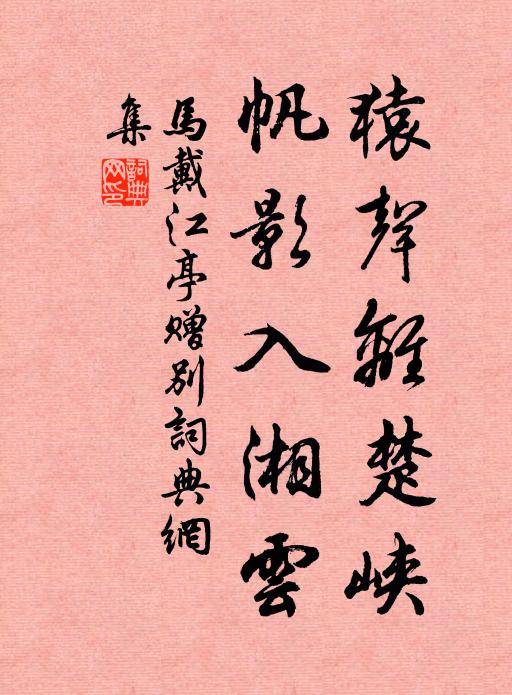 猿聲離楚峽
帆影入湘雲
馬戴江亭贈別詞典網
集
詞典網印